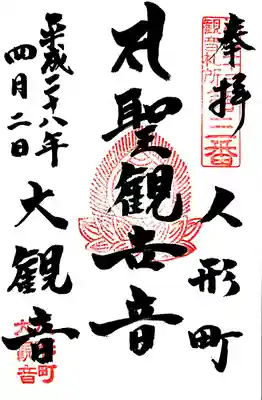 奉拝
観音札所第三番
人形町
聖観世音
平成二十八年
四月二日
大観音
人形町
大観音